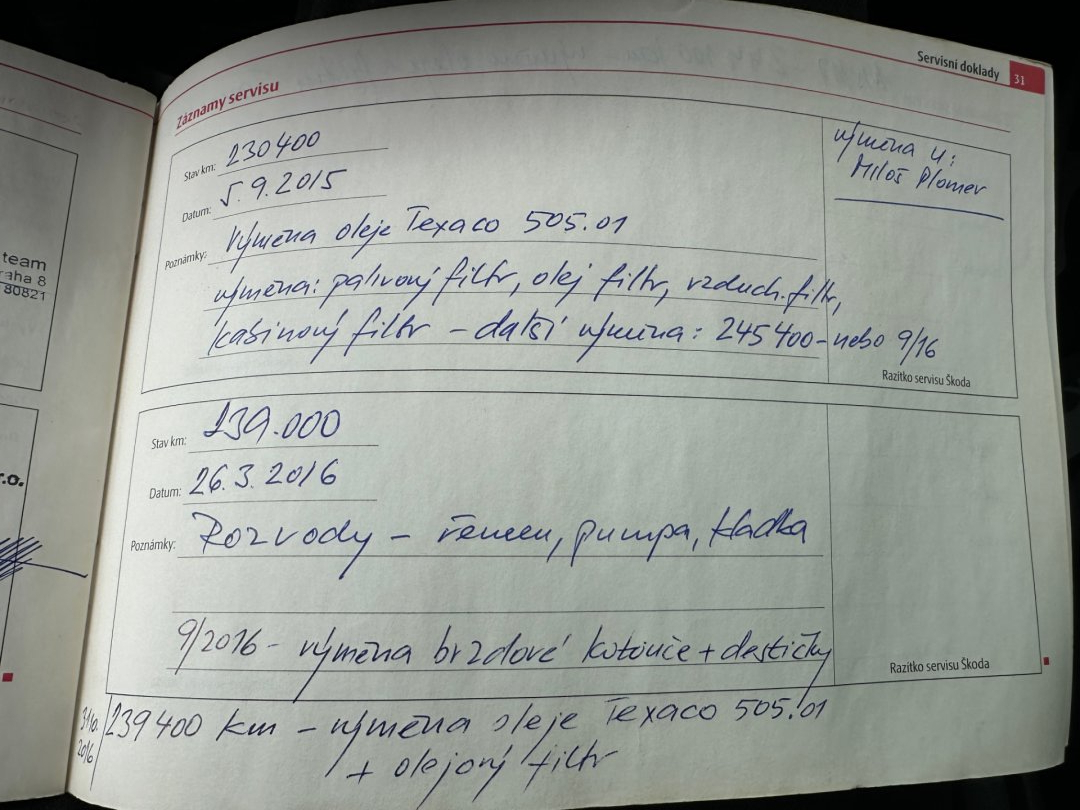 team
raha 8
80821
r.o.
Servisní doklady 31
Záznamy servisu
Stav km: 230400
Datum: 5.9.2015
Poznámky: Výměna oleje Texaco 505.01
výměna: palivový filtr, olej filtr, vzduch. filtr,
kabinový filtr – další výměna: 245400 – nebo 9/16
výměna u:
Miloš Plomer
Razítko servisu Škoda
Stav km: 239.000
Datum: 26.3.2016
Poznámky: Rozvody – řemen, pumpa, kladka
9/2016 – výměna brzdové kotouče + destičky
Razítko servisu Škoda
239400 km – výměna oleje Texaco 505.01
+ olejový filtr
2016